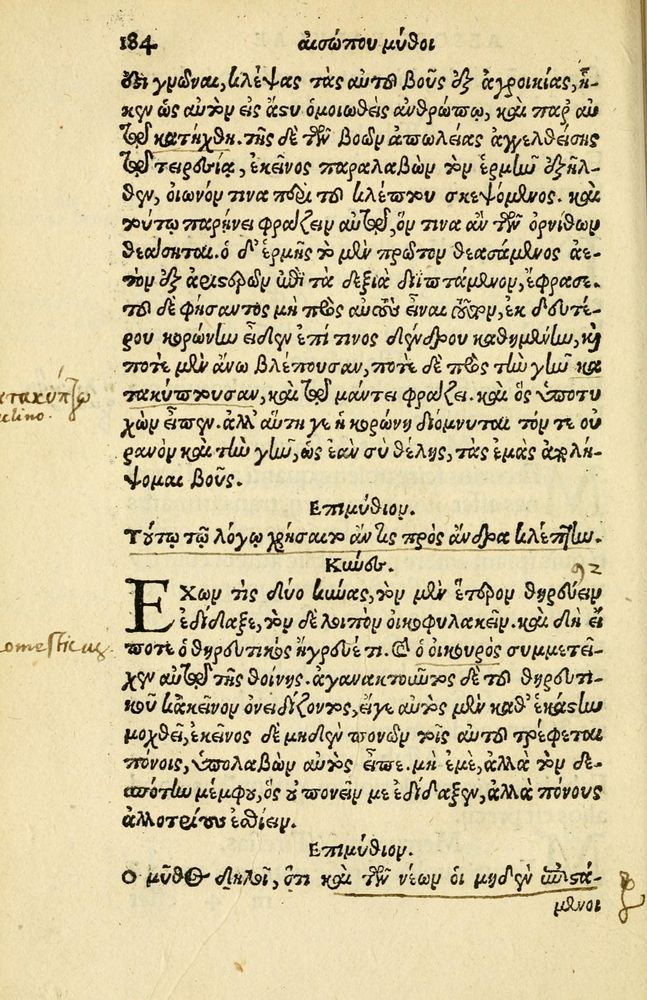 184 αισώπου μύθοι
ἔτι γνῶναι, κλέψας τὰς αὐτοῦ βοῦς ἐξ ἀγροικίας, ἧ-
κεν ὡς αὐτὸν εἰς ἄστυ ὁμοιωθεὶς ἀνθρώπῳ, καὶ παρ' αὐ
τῷ κατήχθη. τῆς δὲ τῶν βοῶν ἀπωλείας ἀγγελθείσης
τῷ τειρεσίᾳ, ἐκεῖνος παραλαβὼν τὸν ἑρμῆν ἐξῆλ-
θεν, οἰωνόν τινα περὶ τοῦ κλέπτου σκεψόμενος. καὶ
τούτῳ παρῄνει φράζειν αὐτῷ, ὅν τινα ἂν τῶν ὀρνίθων
θεάσηται. ὁ δ' ἑρμῆς τὸ μὲν πρῶτον θεασάμενος ἀε-
τὸν ἐξ ἀριστερῶν ἐπὶ τὰ δεξιὰ διϊπτάμενον, ἔφρασε.
τοῦ δὲ φήσαντος μὴ πρὸς αὐτοὺς εἶναι τοῦτον, ἐκ δευτέ-
ρου κορώνην εἶδεν ἐπί τινος δένδρου καθημένην, καὶ
ποτὲ μὲν ἄνω βλέπουσαν, ποτὲ δὲ πρὸς τὴν γῆν κα
τακύπτουσαν, καὶ τῷ μάντει φράζει. καὶ ὃς ὑποτυ
χὼν εἶπεν. ἀλλ' αὕτη γε ἡ κορώνη διόμνυται τόν τε οὐ
ρανὸν καὶ τὴν γῆν, ὡς ἐὰν σὺ θέλῃς, τὰς ἐμὰς ἀπολή-
ψομαι βοῦς.
Επιμύθιον.
Τούτῳ τῷ λόγῳ χρήσαιτο ἄν τις πρὸς ἄνδρα κλέπτην.
Κύνες. 92
ΕΧων τὶς δύο κύνας, τὸν μὲν ἕτερον θηρεύειν
ἐδίδαξε, τὸν δὲ λοιπὸν οἰκοφυλακεῖν. καὶ δὴ εἴ
ποτε ὁ θηρευτικὸς ἤγρευέ τι. καὶ ὁ οἰκουρὸς συμμετεῖ-
χεν αὐτῷ τῆς θοίνης. ἀγανακτοῦντος δὲ τοῦ θηρευτι-
κοῦ κἀκεῖνον ὀνειδίζοντος, εἴγε αὐτὸς μὲν καθ' ἑκάστην
μοχθεῖ, ἐκεῖνος δὲ μηδὲν πονῶν τοῖς αὐτοῦ τρέφεται
πόνοις, ὑπολαβὼν αὐτὸς εἶπε. μὴ ἐμὲ, ἀλλὰ τὸν δε-
σπότην μέμφου, ὃς οὐ πονεῖν με ἐδίδαξεν, ἀλλὰ πόνους
ἀλλοτρίους ἐσθίειν.
Επιμύθιον.
Ο μῦθος δηλοῖ, ὅτι καὶ τῶν νέων οἱ μηδὲν ἐπιστά-
μενοι